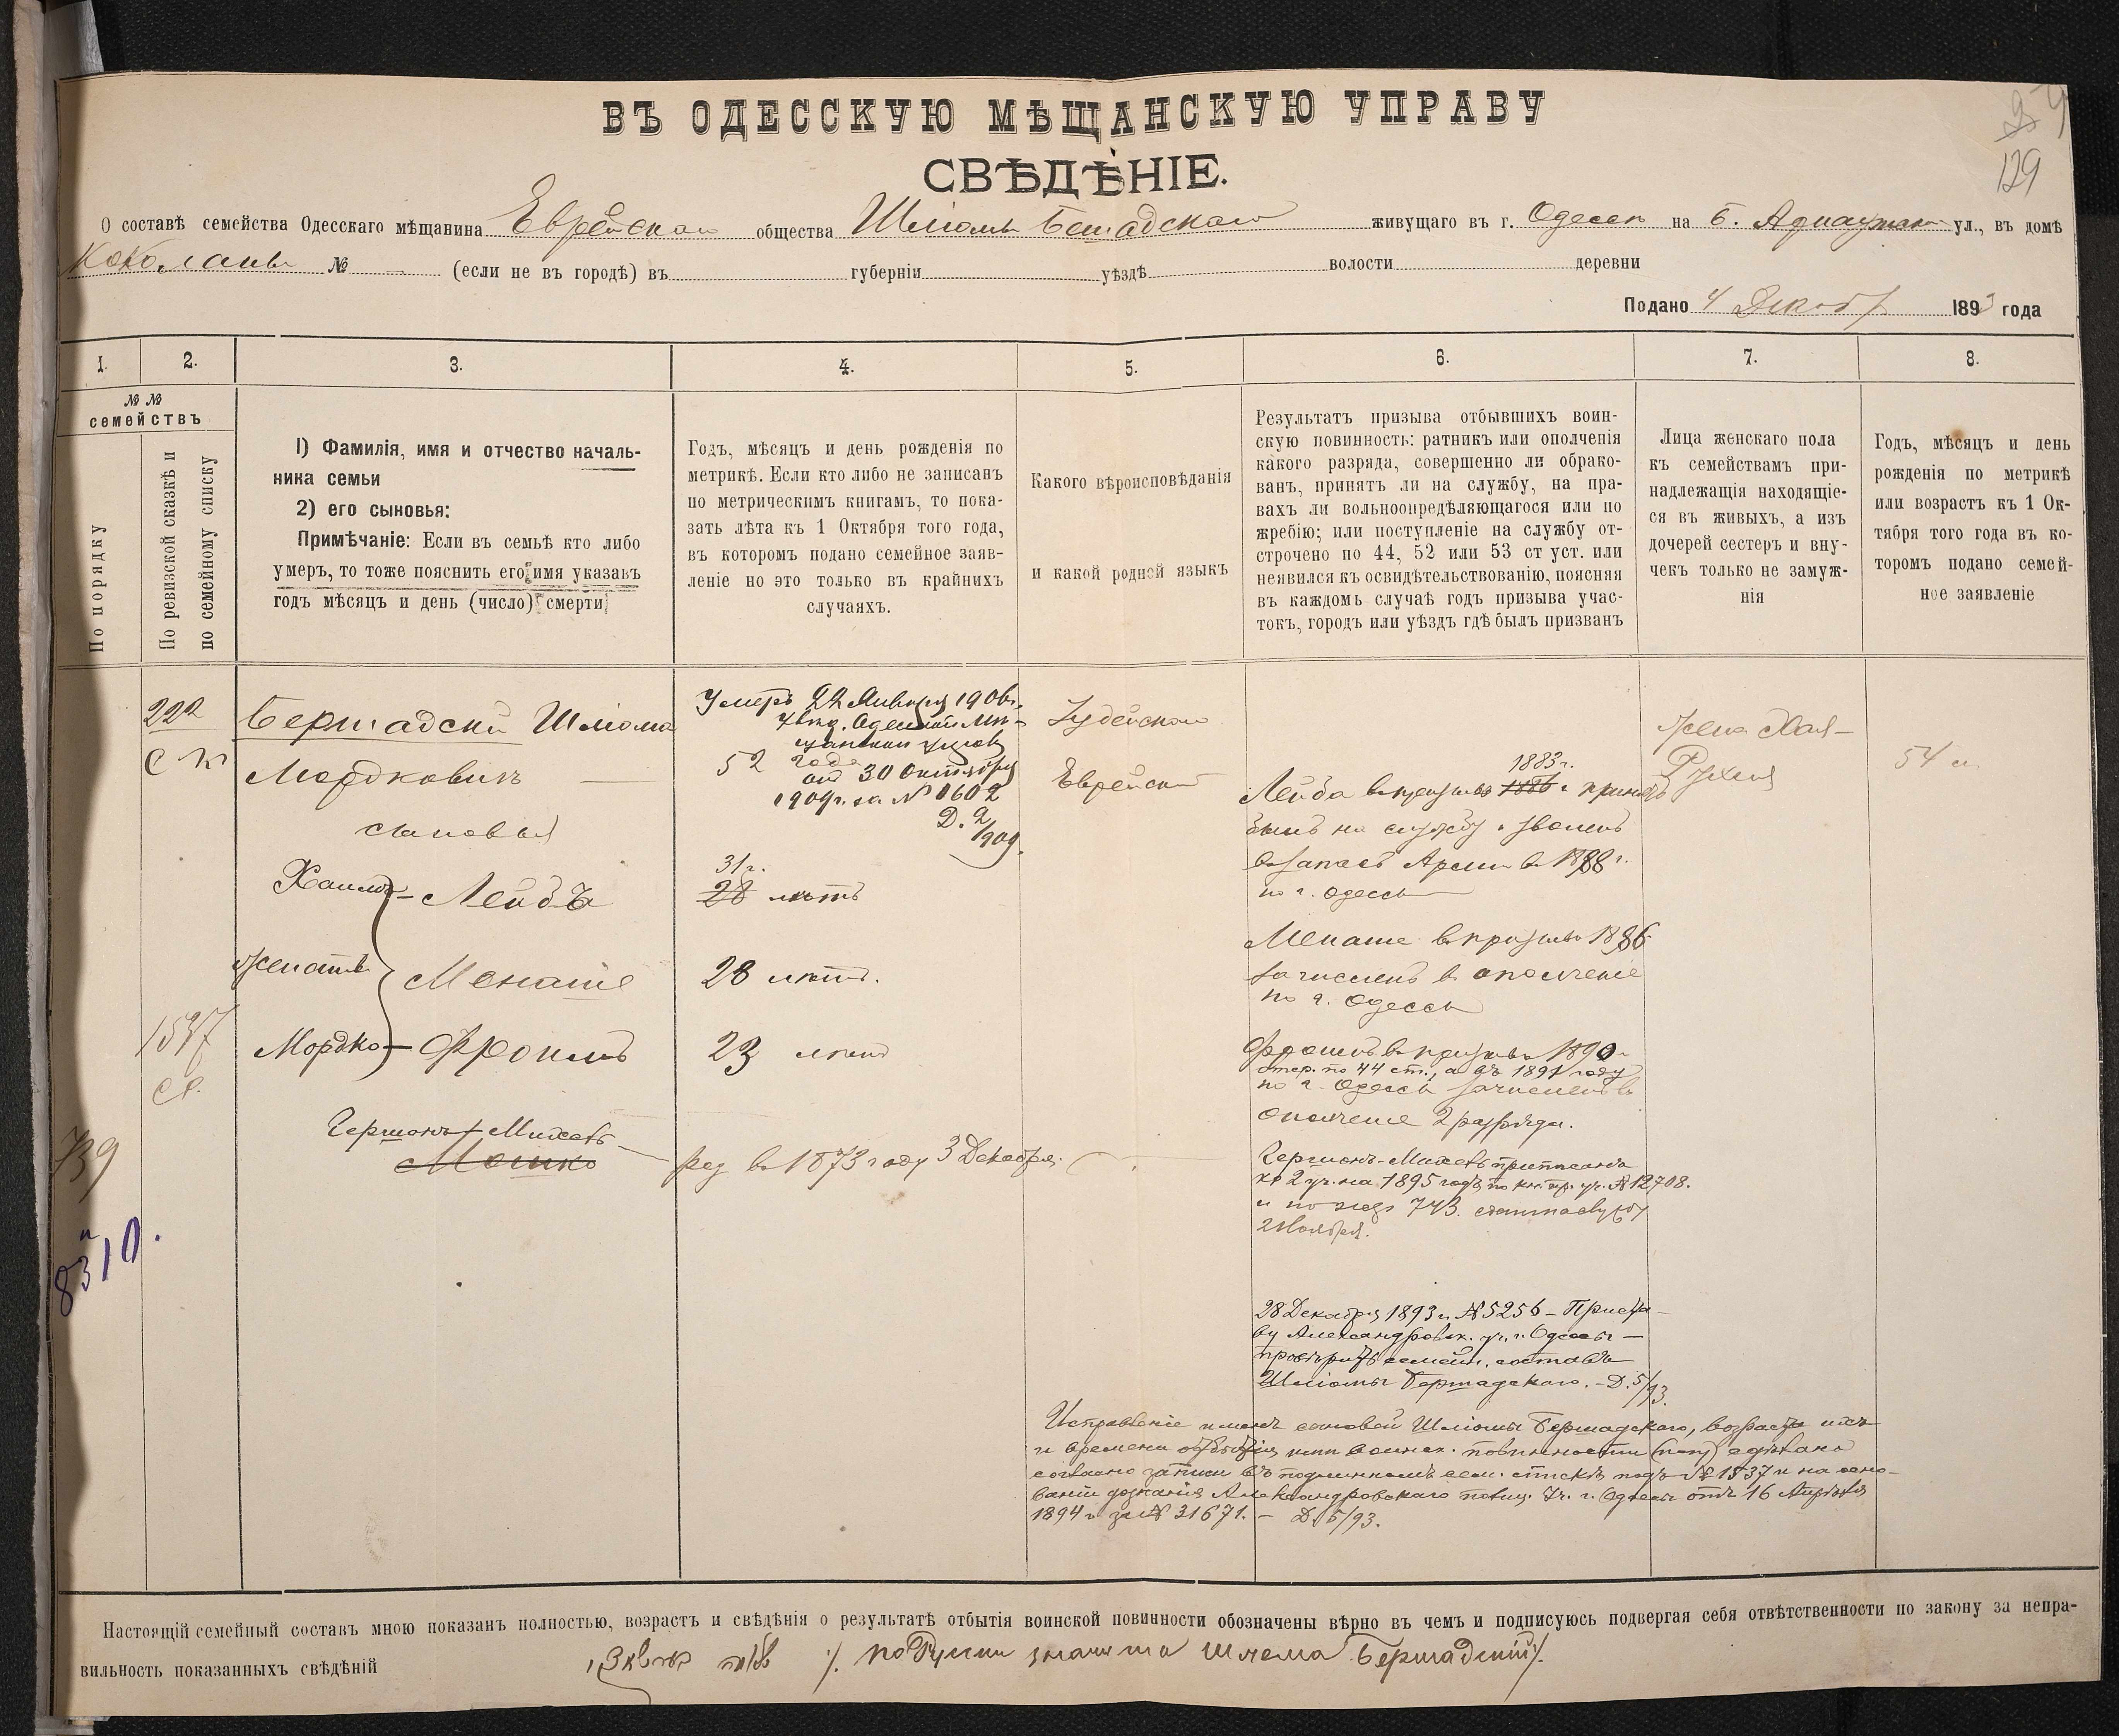 9
129
ВЪ ОДЕССКУЮ МѢЩАНСКУЮ УПРАВУ
СВѢДѢНІЕ.
О составѣ семейства Одесскаго мѣщанина Еврейскаго общества Шліомы Бершадскаго живущаго въ г. Одессѣ на Б. Арнаутск ул., въ домѣ
№ — (если не въ городѣ) въ губерніи уѣздѣ волости деревни
Подано 4 Декабр 1893 года
1. 2. 3. 4. 5. 6. 7. 8.
№ №
семействъ
По порядку
По ревизской сказкѣ и
по семейному списку
1) Фамилія, имя и отчество началь-
ника семьи
2) его сыновья:
Примѣчаніе: Если въ семьѣ кто либо
умеръ, то тоже пояснить его имя указавъ
годъ мѣсяцъ и день (число) смерти
Годъ, мѣсяцъ и день рожденія по
метрикѣ. Если кто либо не записанъ
по метрическимъ книгамъ, то пока-
зать лѣта къ 1 Октября того года,
въ которомъ подано семейное заяв-
леніе но это только въ крайнихъ
случаяхъ.
Какого вѣроисповѣданія
и какой родной языкъ
Результатъ призыва отбывшихъ воин-
скую повинность: ратникъ или ополченія
какого разряда, совершенно ли обрако-
ванъ, принятъ ли на службу, на пра-
вахъ ли вольноопредѣляющагося или по
жребію; или поступленіе на службу от-
строчено по 44, 52 или 53 ст уст. или
неявился къ освидѣтельствованію, поясняя
въ каждомъ случаѣ годъ призыва учас-
токъ, городъ или уѣздъ гдѣ былъ призванъ
Лица женскаго пола
къ семействамъ при-
надлежащія находящіе-
ся въ живыхъ, а изъ
дочерей сестеръ и вну-
чекъ только не замуж-
нія
Годъ, мѣсяцъ и день
рожденія по метрикѣ
или возрастъ къ 1 Ок-
тября того года въ ко-
торомъ подано семей-
ное заявленіе
222
Бершадскій Шліома
Мордковичъ —
сыновья
Хаимъ – Лейбъ
женатъ
Менаше
1537
Мордко – Фроимъ
Гершонъ-Михель
Мошко
739
8310.
Умеръ 22 Января 1906г.
увѣд. Одесской Мѣ-
щанской управ
52 года
от 30 Октября
1909г. за № 1602
Д. 2/909.
31г.
28 лѣтъ
28 лѣтъ.
23 лѣтъ
род въ 1873 году 3 Декабря.
Іудейскаго
Еврейскій
1883г.
Лейба въ призывъ 1886 г принятъ
былъ на службу и уволенъ
въ запасъ Арміи въ 1888 г.
по г. Одессѣ
Менаше въ призывъ 1886
зачисленъ въ ополченіе
по г. Одессѣ
Фроимъ въ призывъ 1890
отср. по 44 ст., а въ 1891 году
по г. Одессѣ зачисленъ в
ополченіе 2 разряда.
Гершонъ-Михель приписанъ
къ 2 уч. на 1895 годъ по кн. пр. уч. № 12708.
2 Ноября.
жена Хая–
Рухля
54 л.
28 Декабря 1893 г. № 5256 – Приста-
ву Александровск. уч. г. Одессы –
провѣрить семейн. составъ
Шліомы Бершадскаго. – Д. 5/93.
Исправленіе именъ сыновей Шліомы Бершадскаго, возраста ихъ
и времени отбытія ими воинск. повинности сдѣлано
согласно записи въ подлинномъ сем. спискѣ подъ № 1537 и на осно-
ваніи дознанія Александровскаго полиц. Уч. г. Одессы отъ 16 Апрѣля
1894 г за № 31671. – Д. 5/93.
Настоящій семейный составъ мною показанъ полностью, возрастъ и свѣдѣнія о результатѣ отбытія воинской повинности обозначены вѣрно въ чемъ и подписуюсь подвергая себя отвѣтственности по закону за непра-
вильность показанныхъ свѣдѣній
по Руски значитъ Шлема Бершадскій